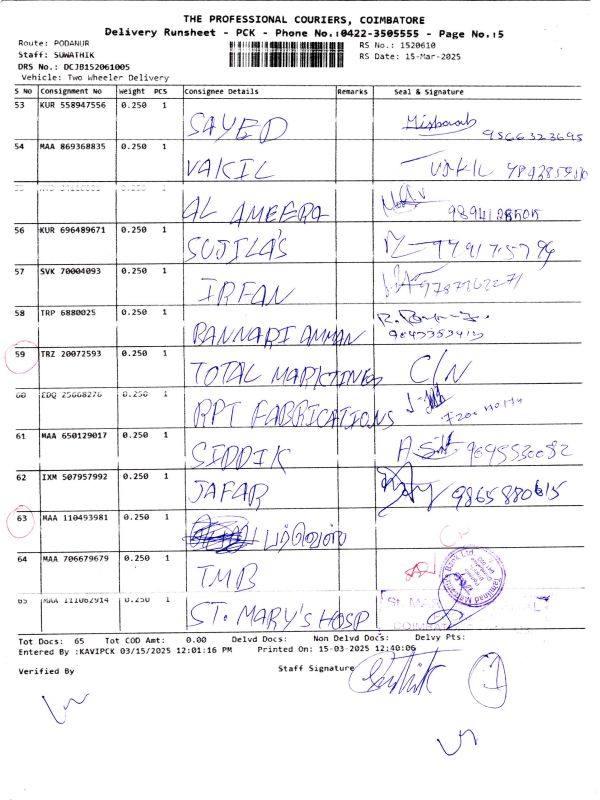 THE PROFESSIONAL COURIERS, COIMBATORE
Delivery Runsheet - PCK - Phone No.:0422-3505555 - Page No.:5
Route: PODANUR
RS No.: 1520610
Staff: SUWATHIK
RS Date: 15-Mar-2025
DRS No.: DCJB152061005
Vehicle: Two Wheeler Delivery
S No Consignment No Weight PCS Consignee Details Remarks Seal & Signature
53 KUR 558947556 0.250 1 SAYED Misbaah 9566323695
54 MAA 869368835 0.250 1 VAKIL VAKIL
0.250 1 AL AMEERA
56 KUR 696489671 0.250 1 SUJILA'S
57 SVK 70004093 0.250 1 IRFAN
58 TRP 6880025 0.250 1 BANNARI AMMAN
59 TRZ 20072593 0.250 1 TOTAL MARKTINES C/N
60 EDQ 25668276 0.250 1 RPT FABRICATIONS
61 MAA 650129017 0.250 1 SIDDIK
62 IXM 507957992 0.250 1 JAFAR 9865880615
63 MAA 110493981 0.250 1
64 MAA 706679679 0.250 1 TMB
65 MAA 111062914 0.250 1 ST. MARY'S HOSP
Tot Docs: 65 Tot COD Amt: 0.00 Delvd Docs: Non Delvd Docs: Delvy Pts:
Entered By :KAVIPCK 03/15/2025 12:01:16 PM Printed On: 15-03-2025 12:40:06
Verified By Staff Signature
1